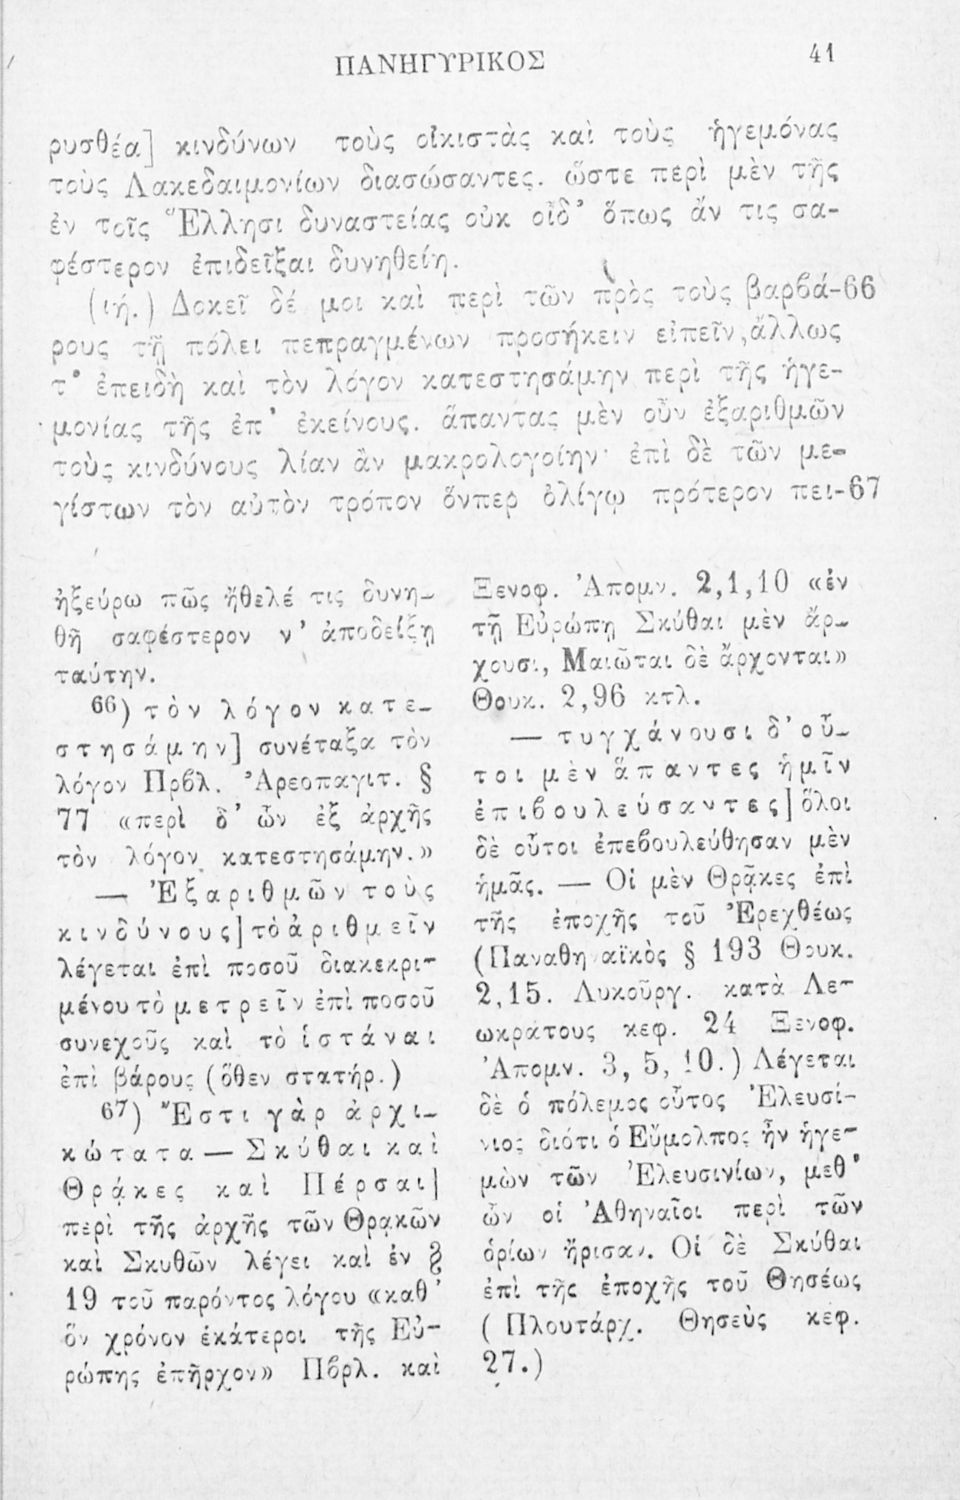 ΠΑΝΗΓΥΡΙΚΟΣ 41
ρυσθέα] κινδύνων τοὺς οἰκιστὰς καὶ τοὺς ἡγεμόνας
τοὺς Λακεδαιμονίων διασώσαντες. ὥστε περὶ μὲν τῆς
ἐν τοῖς Ἕλλησι δυναστείας οὐκ οἶδ' ὅπως ἄν τις σα-
φέστερον ἐπιδεῖξαι δυνηθείη.
(ιή.) Δοκεῖ δέ μοι καὶ περὶ τῶν πρὸς τοὺς βαρβά-66
ρους τῇ πόλει πεπραγμένων προσήκειν εἰπεῖν, ἄλλως
τ' ἐπειδὴ καὶ τὸν λόγον κατεστησάμην περὶ τῆς ἡγε-
μονίας τῆς ἐπ' ἐκείνους. ἅπαντας μὲν οὖν ἐξαριθμῶν
τοὺς κινδύνους λίαν ἂν μακρολογοίην· ἐπὶ δὲ τῶν με-
γίστων τὸν αὐτὸν τρόπον ὅνπερ ὀλίγῳ πρότερον πει-67
ἠξεύρω πῶς ἤθελέ τις δυνη-
θῆ σαφέστερον ν' ἀποδείξῃ
ταύτην.
66) τὸν λόγον κατε-
στησάμην] συνέταξα τὸν
λόγον Πρβλ. Ἀρεοπαγιτ. §
77 «περὶ δ' ὧν ἐξ ἀρχῆς
τὸν λόγον κατεστησάμην.»
— Ἐξαριθμῶν τοὺς
κινδύνους] τὸ ἀριθμεῖν
λέγεται ἐπὶ ποσοῦ διακεκρι-
μένου τὸ μετρεῖν ἐπὶ ποσοῦ
συνεχοῦς καὶ τὸ ἱστάναι
ἐπὶ βάρους (ὅθεν στατήρ.)
67) Ἔστι γὰρ ἀρχι-
κώτατα — Σκύθαι καὶ
Θρᾷκες καὶ Πέρσαι]
περὶ τῆς ἀρχῆς τῶν Θρᾳκῶν
καὶ Σκυθῶν λέγει καὶ ἐν §
19 τοῦ παρόντος λόγου «καθ'
ὃν χρόνον ἑκάτεροι τῆς Εὐ-
ρώπης ἐπῆρχον» Πβρλ. καὶ
Ξενοφ. Ἀπομν. 2,1,10 «ἐν
τῇ Εὐρώπῃ Σκύθαι μὲν ἄρ-
χουσι, Μαιῶται δὲ ἄρχονται»
Θουκ. 2,96 κτλ.
— τυγχάνουσι δ' οὗ-
τοι μὲν ἅπαντες ἡμῖν
ἐπιβουλεύσαντες] ὅλοι
δὲ οὗτοι ἐπεβουλεύθησαν μὲν
ἡμᾶς. — Οἱ μὲν Θρᾷκες ἐπὶ
τῆς ἐποχῆς τοῦ Ἐρεχθέως
(Παναθηναϊκὸς § 193 Θουκ.
2,15. Λυκοῦργ. κατὰ Λε-
ωκράτους κεφ. 24 Ξενοφ.
Ἀπομν. 3, 5, 10.) Λέγεται
δὲ ὁ πόλεμος οὗτος Ἐλευσί-
νιος διότι ὁ Εὔμολπος ἦν ἡγε-
μὼν τῶν Ἐλευσινίων, μεθ'
ὧν οἱ Ἀθηναῖοι περὶ τῶν
ὁρίων ἤρισαν. Οἱ δὲ Σκύθαι
ἐπὶ τῆς ἐποχῆς τοῦ Θησέως
(Πλουτάρχ. Θησεὺς κεφ.
27.)